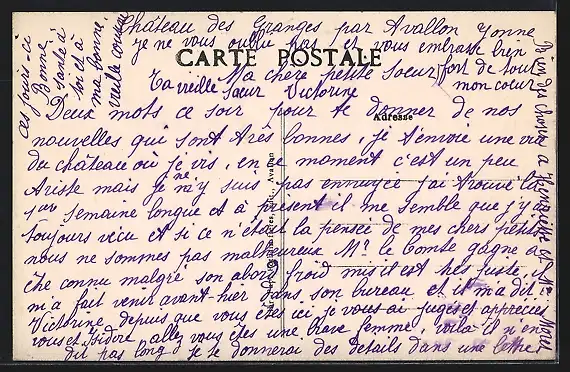 Château des Granges par Avallon Yonne
je ne vous oublie pas et vous embrasse bien
CARTE POSTALE
fort de tout
mon coeur
Ta vieille
Soeur Victorine
Ma chère petite Soeur
Adresse
Deux mots ce soir pour te donner de nos
nouvelles qui sont très bonnes, je t'envoie une vue
du château où je vis, en ce moment c'est un peu
triste mais je ne m'y suis pas ennuyée j'ai trouvé la
1ère semaine longue et à présent il me semble que j'y ai
toujours vécu et si ce n'était la pensée de mes chers petits
nous ne sommes pas malheureux Mr le Comte gagne a
être connu malgré son abord froid mis il est très juste, il
m'a fait venir avant hier dans son bureau et il m'a dit
Victorine, depuis que vous êtes ici je vous ai jugés et appréciés
vous et Isidore allez vous êtes une brave femme, voilà il n'en
dit pas long, je te donnerai des détails dans une lettre
ces jours-ci
Bonne
santé à
toi et à
ma bonne
vieille
Bien des choses à
Avallon